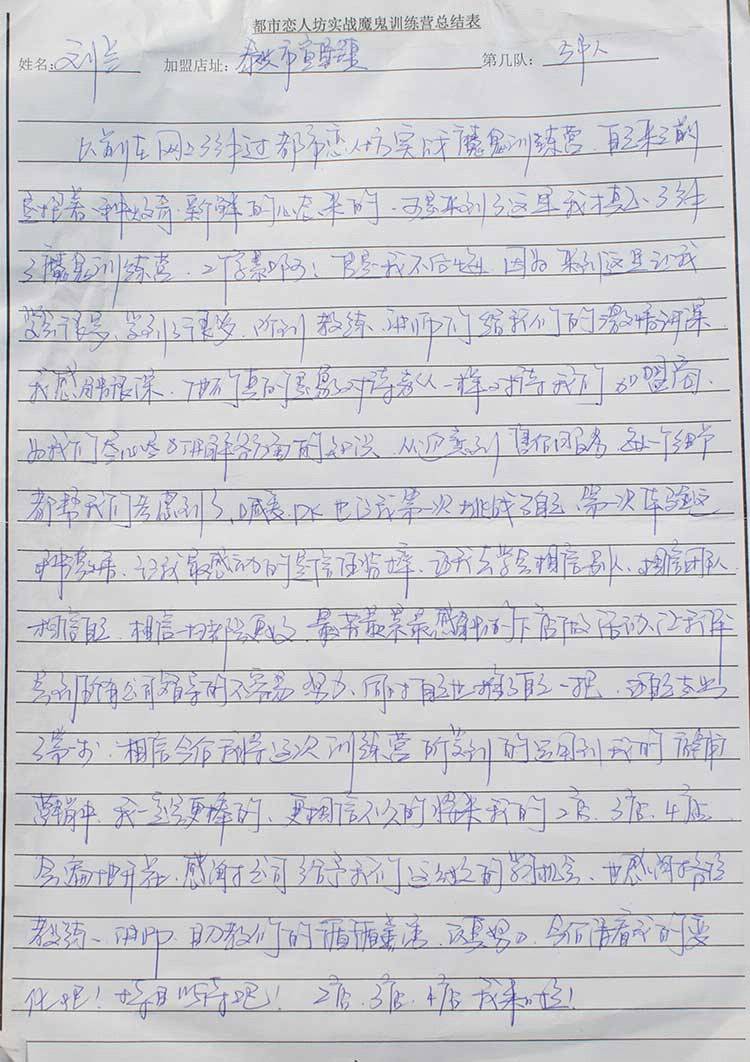 都市恋人坊实战魔鬼训练营总结表
姓名: 刘兰 加盟店址: 第几队:
以前在网上了解过都市恋人坊实战魔鬼训练营,自己来之前
是抱着一种好奇、新鲜的心态来的,可是来到了这里我才真正了解
了魔鬼训练营,2字累啊!但是我不后悔,因为来到这里让我
很多,学到了很多,听到教练、讲师们给我们的激情讲课
我感触很深,他们真的像对待家人一样对待我们加盟商,
为我们尽心尽力讲解各方面的知识,从到售后服务,每一个细节
都帮我们考虑到了,喊麦、PK也让我第一次挑战了自己,第一次体验这
种激情,让我最感动的是信任背摔,让我去学会相信别人,相信团队
相信自己,相信一切都会更好,最苦最累最感触的下店做活动,让我体
会到所有公司领导的不容易努力,同时自己也推了自己一把,让自己走出
了第一步,相信今后我将这次训练营所学到的运用到我的店铺
中,我一定会更棒的,更相信不久的将来我的2店、3店、4店
会遍地开花,感谢公司给予我们这次的学习机会,也感谢各位
教练、讲师、助教们的循循善诱,今后请看我的变
化吧!拭目以待吧!2店、3店、4店我来啦!